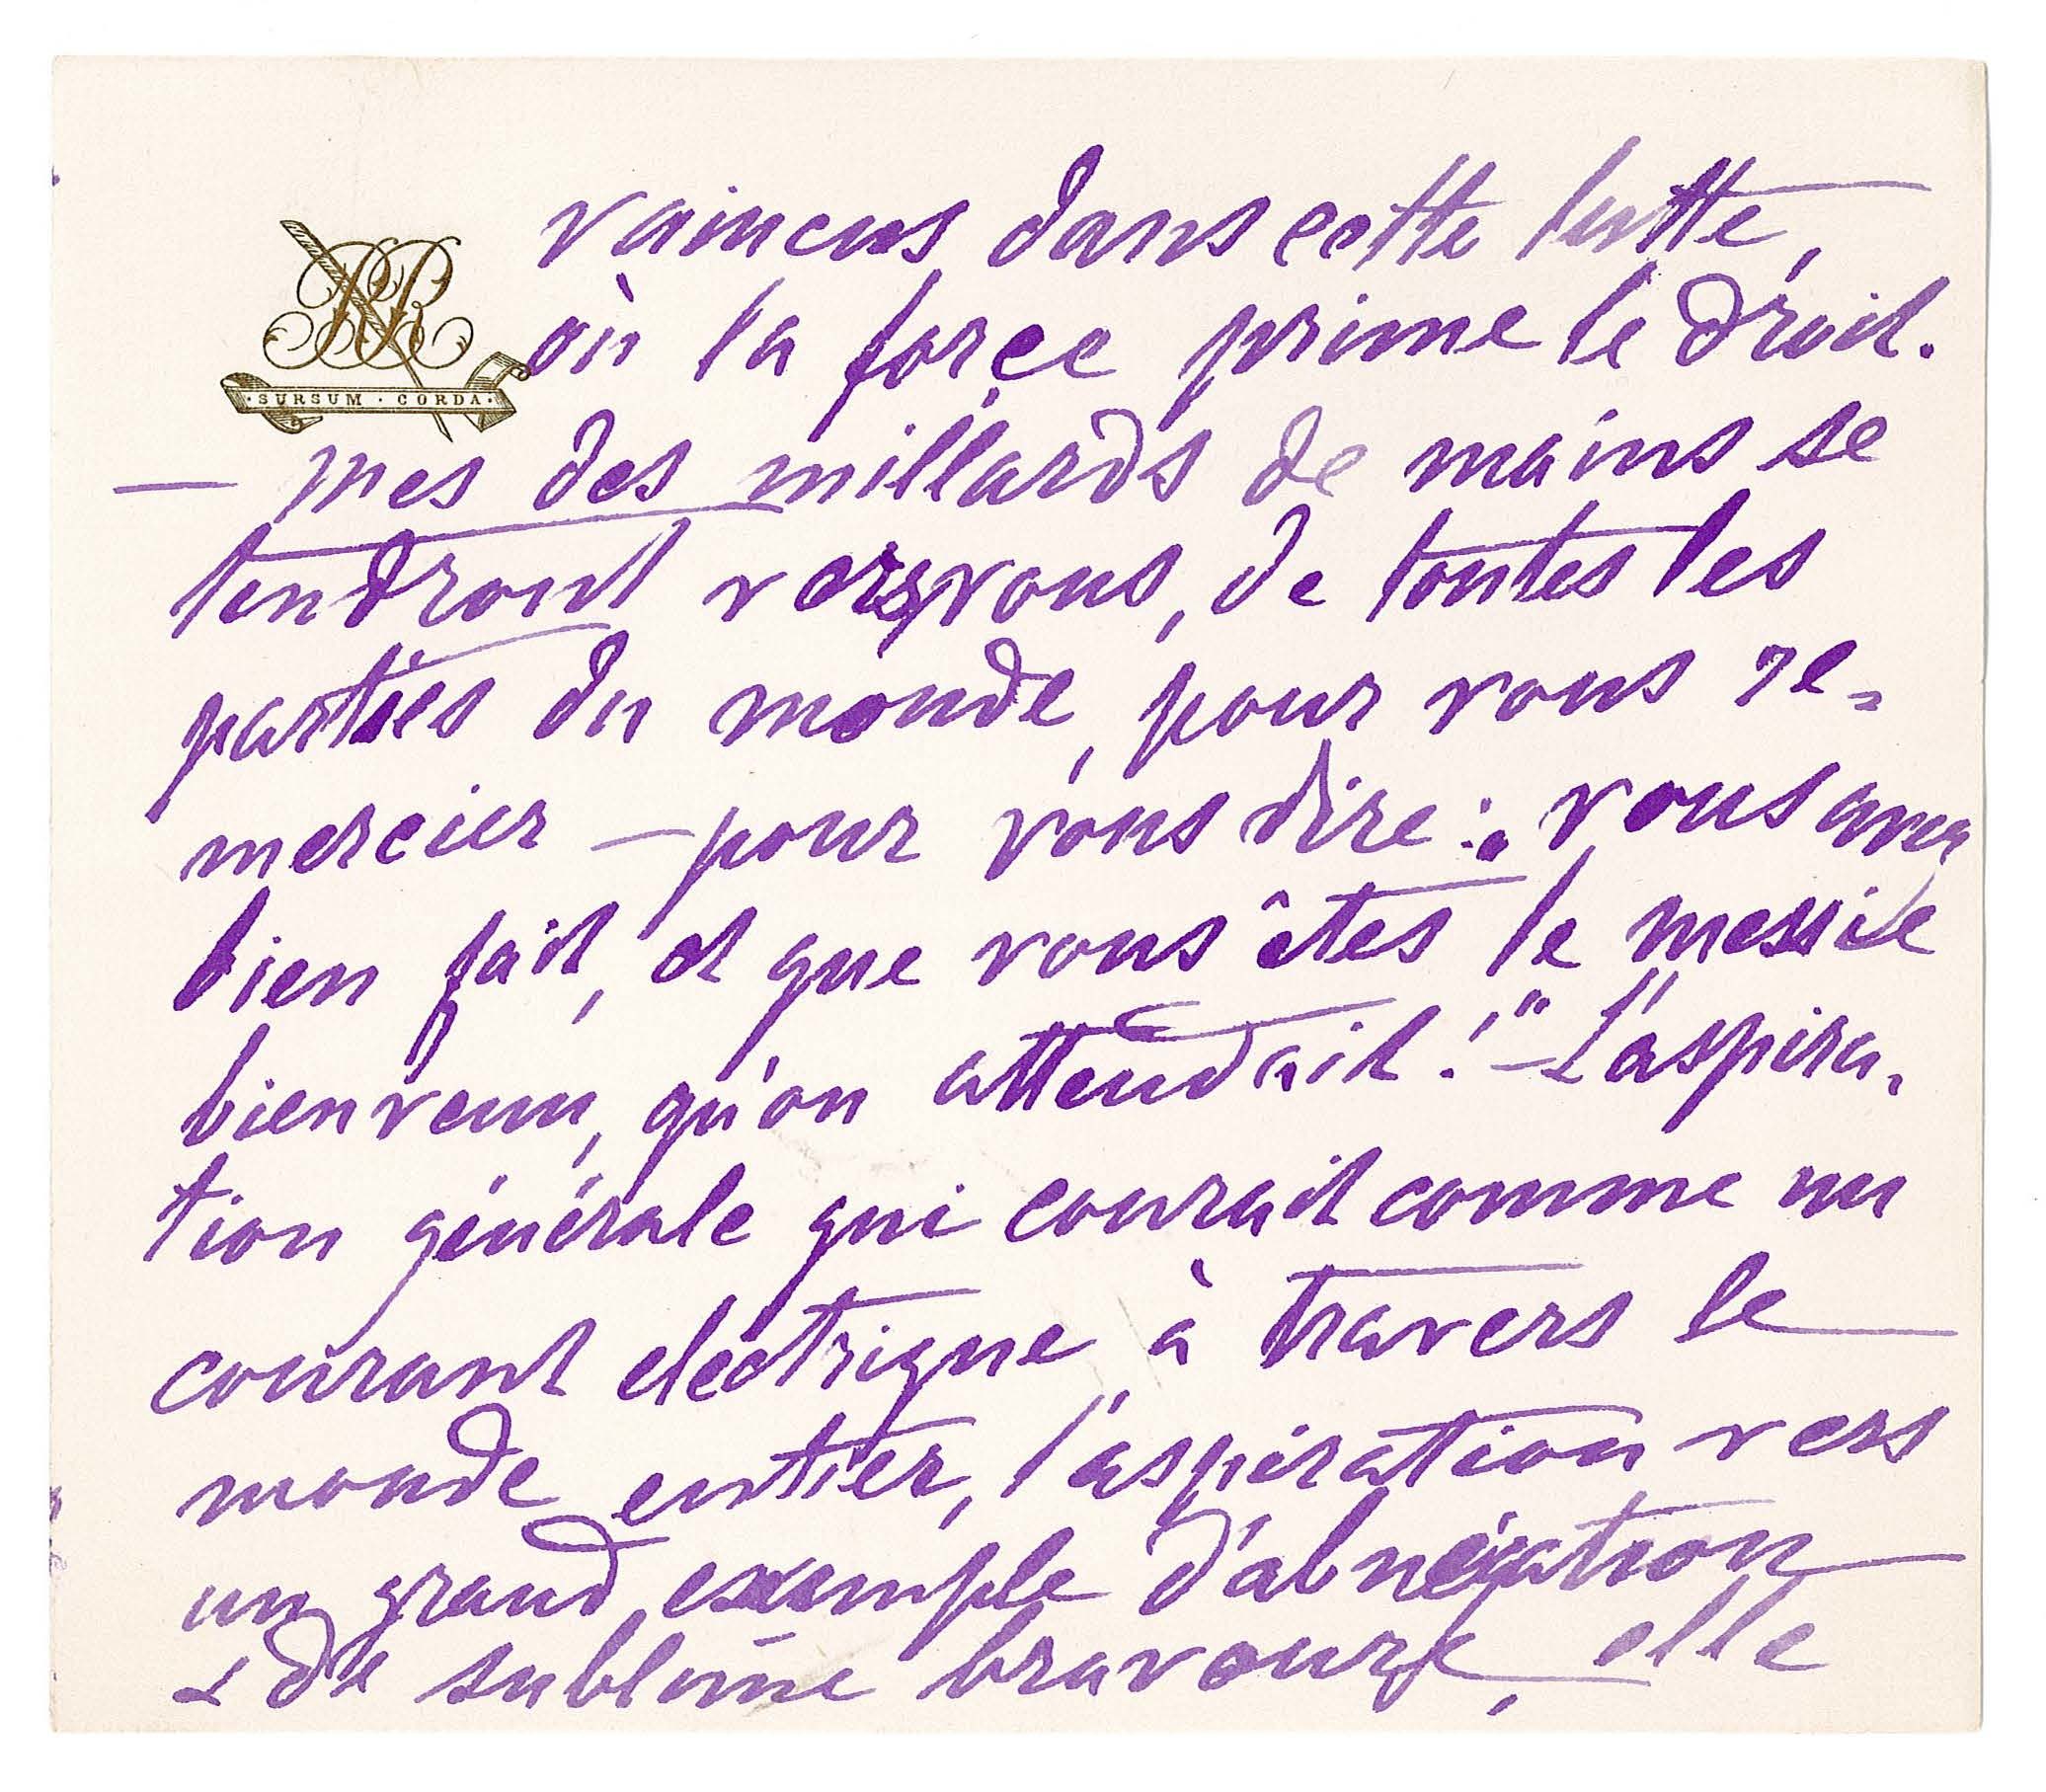 vaincus dans cette lutte,
où la force prime le droit.
SURSUM · CORDA
— Mes des millards de mains se
tendront vers vous, de toutes les
parties du monde, pour vous re-
mercier — pour vous dire : " vous avez
bien fait, et que vous êtes le messie
bienvenu, qu'on attendait !" — L'aspira-
tion générale qui courait comme un
courant electrique, à travers le
monde entier, l'aspiration vers
un grand exemple d'abnégation
& de sublime bravoure, elle